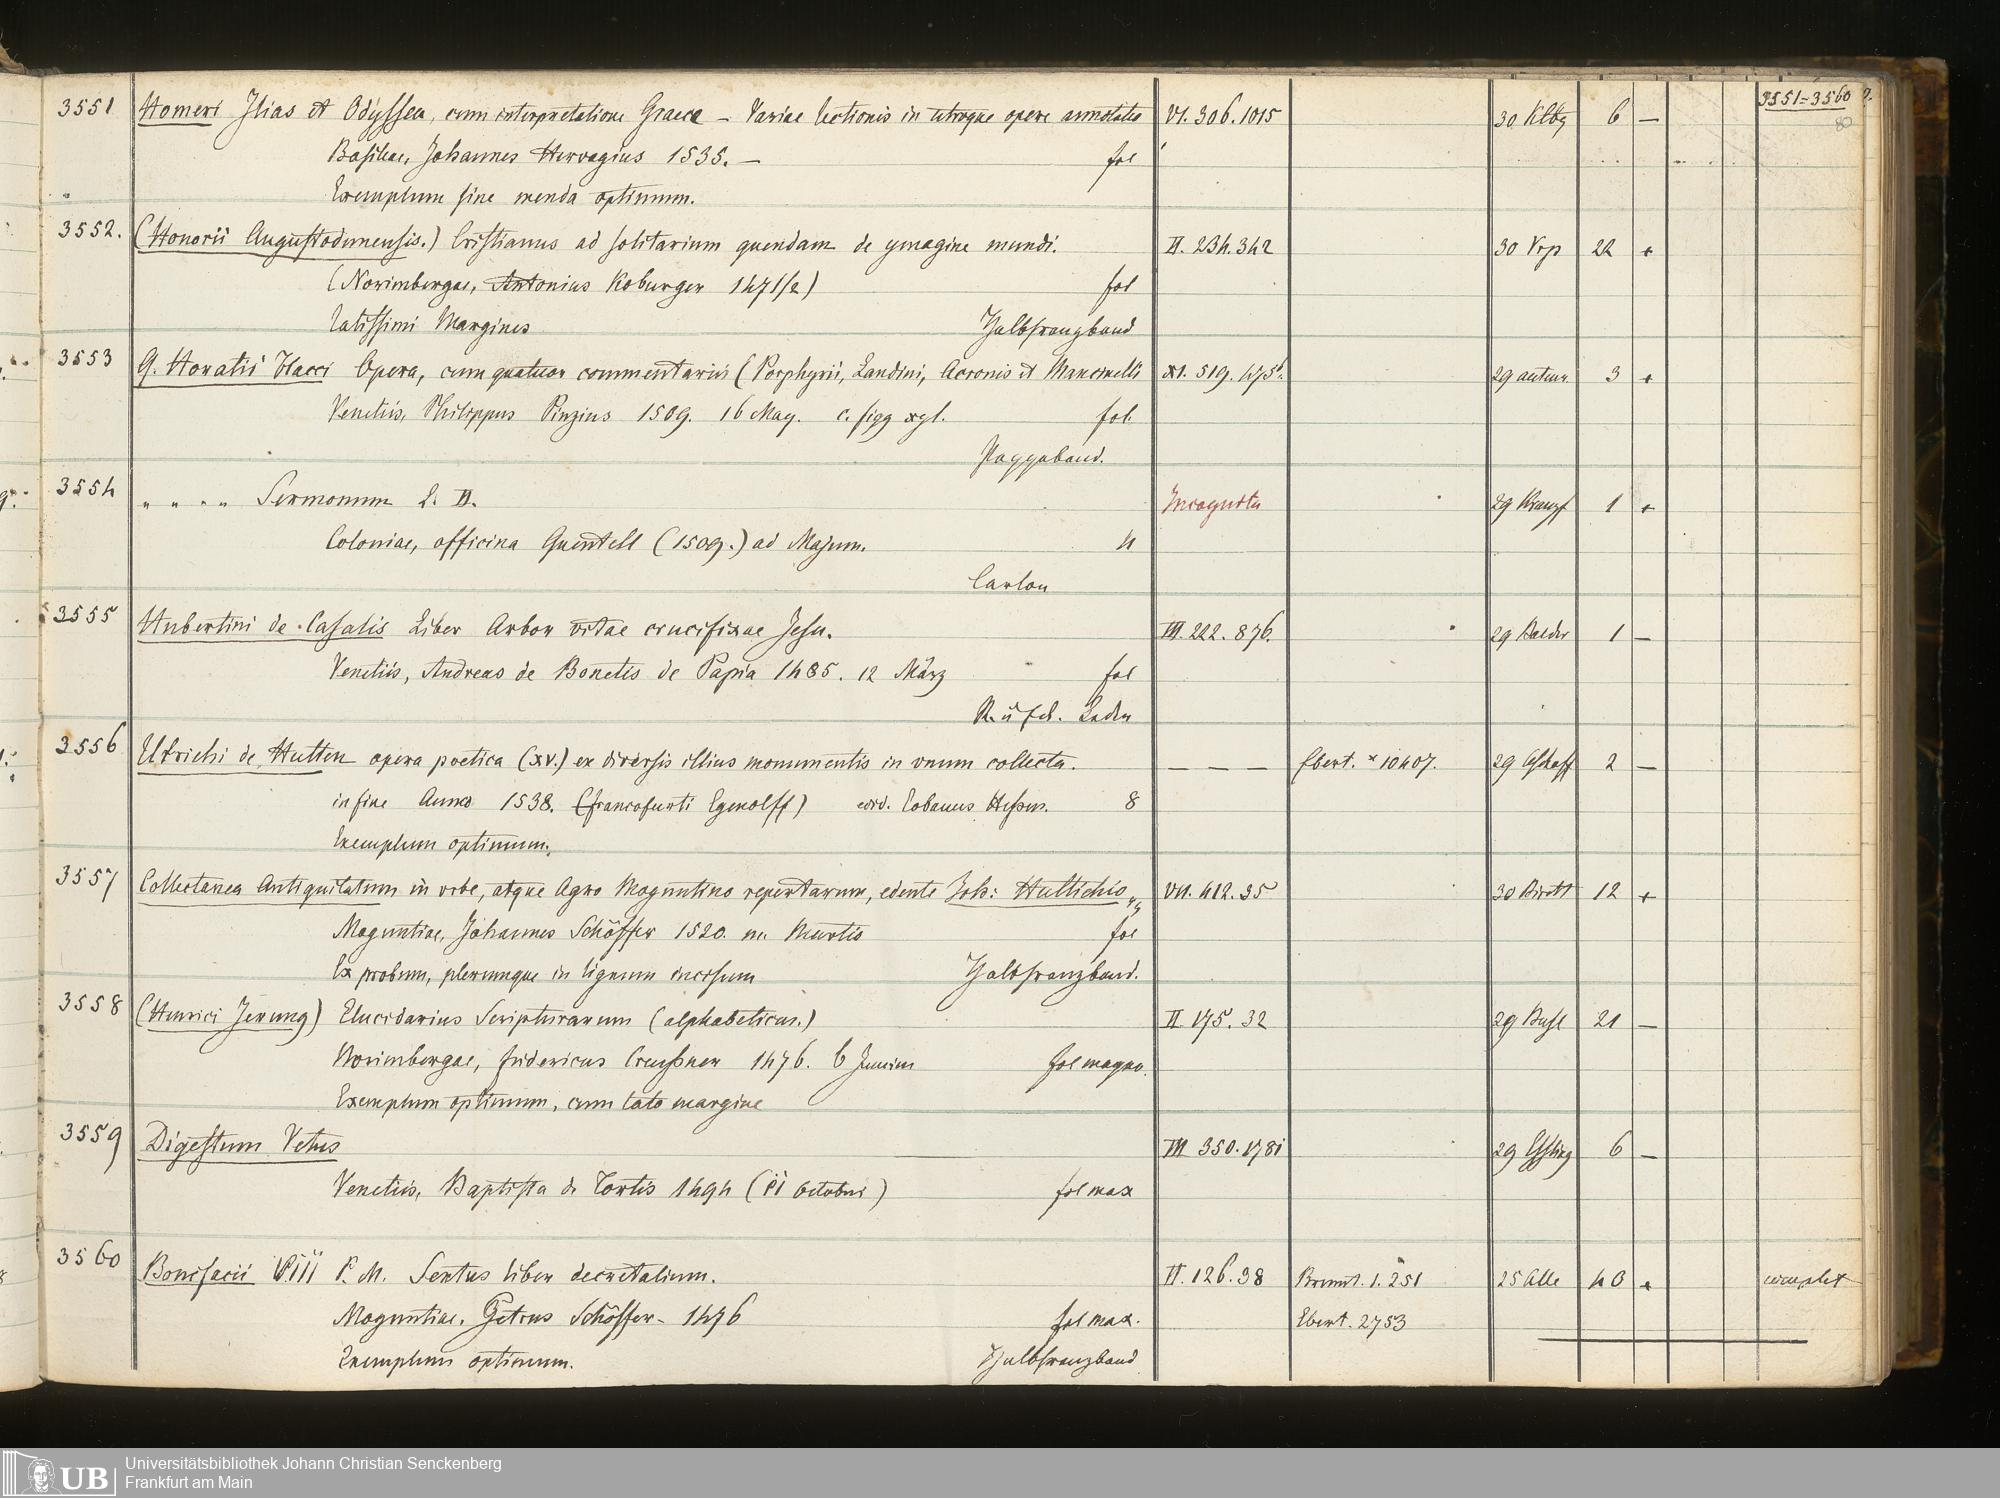 3551=3560
80
3551 Homeri Ilias et Odyssea, cum interpretatione Graeca – Variae lectionis in utroque opere annotatio VI. 306. 1015 30 Klbg 6 —
Basileae, Johannes Hervagius 1535. — fol
Exemplum sine menda optimum.
3552. (Honorii Augustodunensis.) Cristianus ad solitarium quendam de ymagine mundi. II. 234. 342 30 Vrp 22 +
(Norimbergae, Antonius Koburger 1471/2) fol
Latissimi Margines Halbfranzband
3553 Q. Horatii Flacci Opera, cum quatuor commentariis (Porphyrii, Landini, Acronis et Mancinelli XI. 519. 475b. 29 autun. 3 +
Venetiis, Philippus Pinzius 1509. 16 May. c. figg xyl. fol.
Pappband.
3554 " " " " Sermonum L. II. Incognita 29 Krampf 1 +
Coloniae, officina Quentell (1509.) ad Majum. 4
Carton
3555 Hubertini de Casalis Liber Arbor vitae crucifixae Jesu. III. 222. 876. 29 1 —
Venetiis, Andreas de Bonetis de Papia 1485. 12 März fol
R. u Eck. Leder
3556 Ulrichi de Hutten opera poetica (XV.) ex diversis illius monumentis in unum collecta. — — — Ebert. * 10407. 29 Aschaff 2 —
in fine Anno 1538. (francofurti Egenolff) cord. Eobanus Hessus. 8
Exemplum optimum.
3557 Collectanea Antiquitatum in urbe, atque Agro Moguntino repertarum, edente Joh: Huttichio VII. 412. 35 30 12 +
Moguntiae, Johannes Schöffer 1520. m. Martio fol
Ex probum, plerumque in lignum incisum Halbfranzband.
3558 (Henrici Jerung) Elucidarius Scripturarum (alphabeticus.) II. 175. 32 29 Basl 21 —
Norimbergae, fridericus Creussner 1476. 6 Junium fol magno.
Exemplum optimum, cum lato margine
3559 Digestum Vetus III 350. 1781 29 Essling 6 —
Venetiis, Baptista de Tortis 1494 (VI Octobri) fol max
3560 Bonifacii VIII P. M. Sextus liber decretalium. II. 126. 38 Brunet. 1. 251 25 Alle 40 + complet
Moguntiae. Petrus Schöffer – 1476 fol max. Ebert. 2753
Exemplum optimum. Halbfranzband
UB
Universitätsbibliothek Johann Christian Senckenberg
Frankfurt am Main